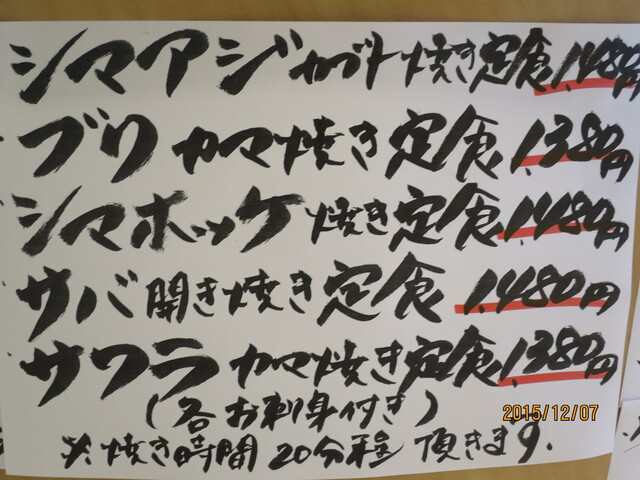 シマアジカブト焼き定食1,480円
ブリカマ焼き定食1,380円
シマホッケ焼き定食1,480円
サバ開き焼き定食1,480円
サワラカマ焼き定食1,380円
(各お刺身付き)
※焼き時間20分程頂きます.
2015/12/07